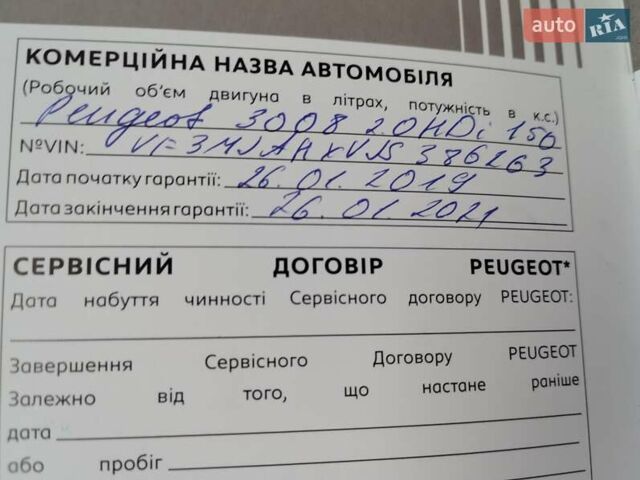 auto RIA
КОМЕРЦІЙНА НАЗВА АВТОМОБІЛЯ
(Робочий об'єм двигуна в літрах, потужність в к.с.)
Peugeot 3008 2.0HDi 150
№VIN: VF3MJAHXVJS386263
Дата початку гарантії: 26.01.2019
Дата закінчення гарантії: 26.01.2021
СЕРВІСНИЙ ДОГОВІР PEUGEOT*
Дата набуття чинності Сервісного договору PEUGEOT:
Завершення Сервісного Договору PEUGEOT
Залежно від того, що настане раніше
дата
або пробіг